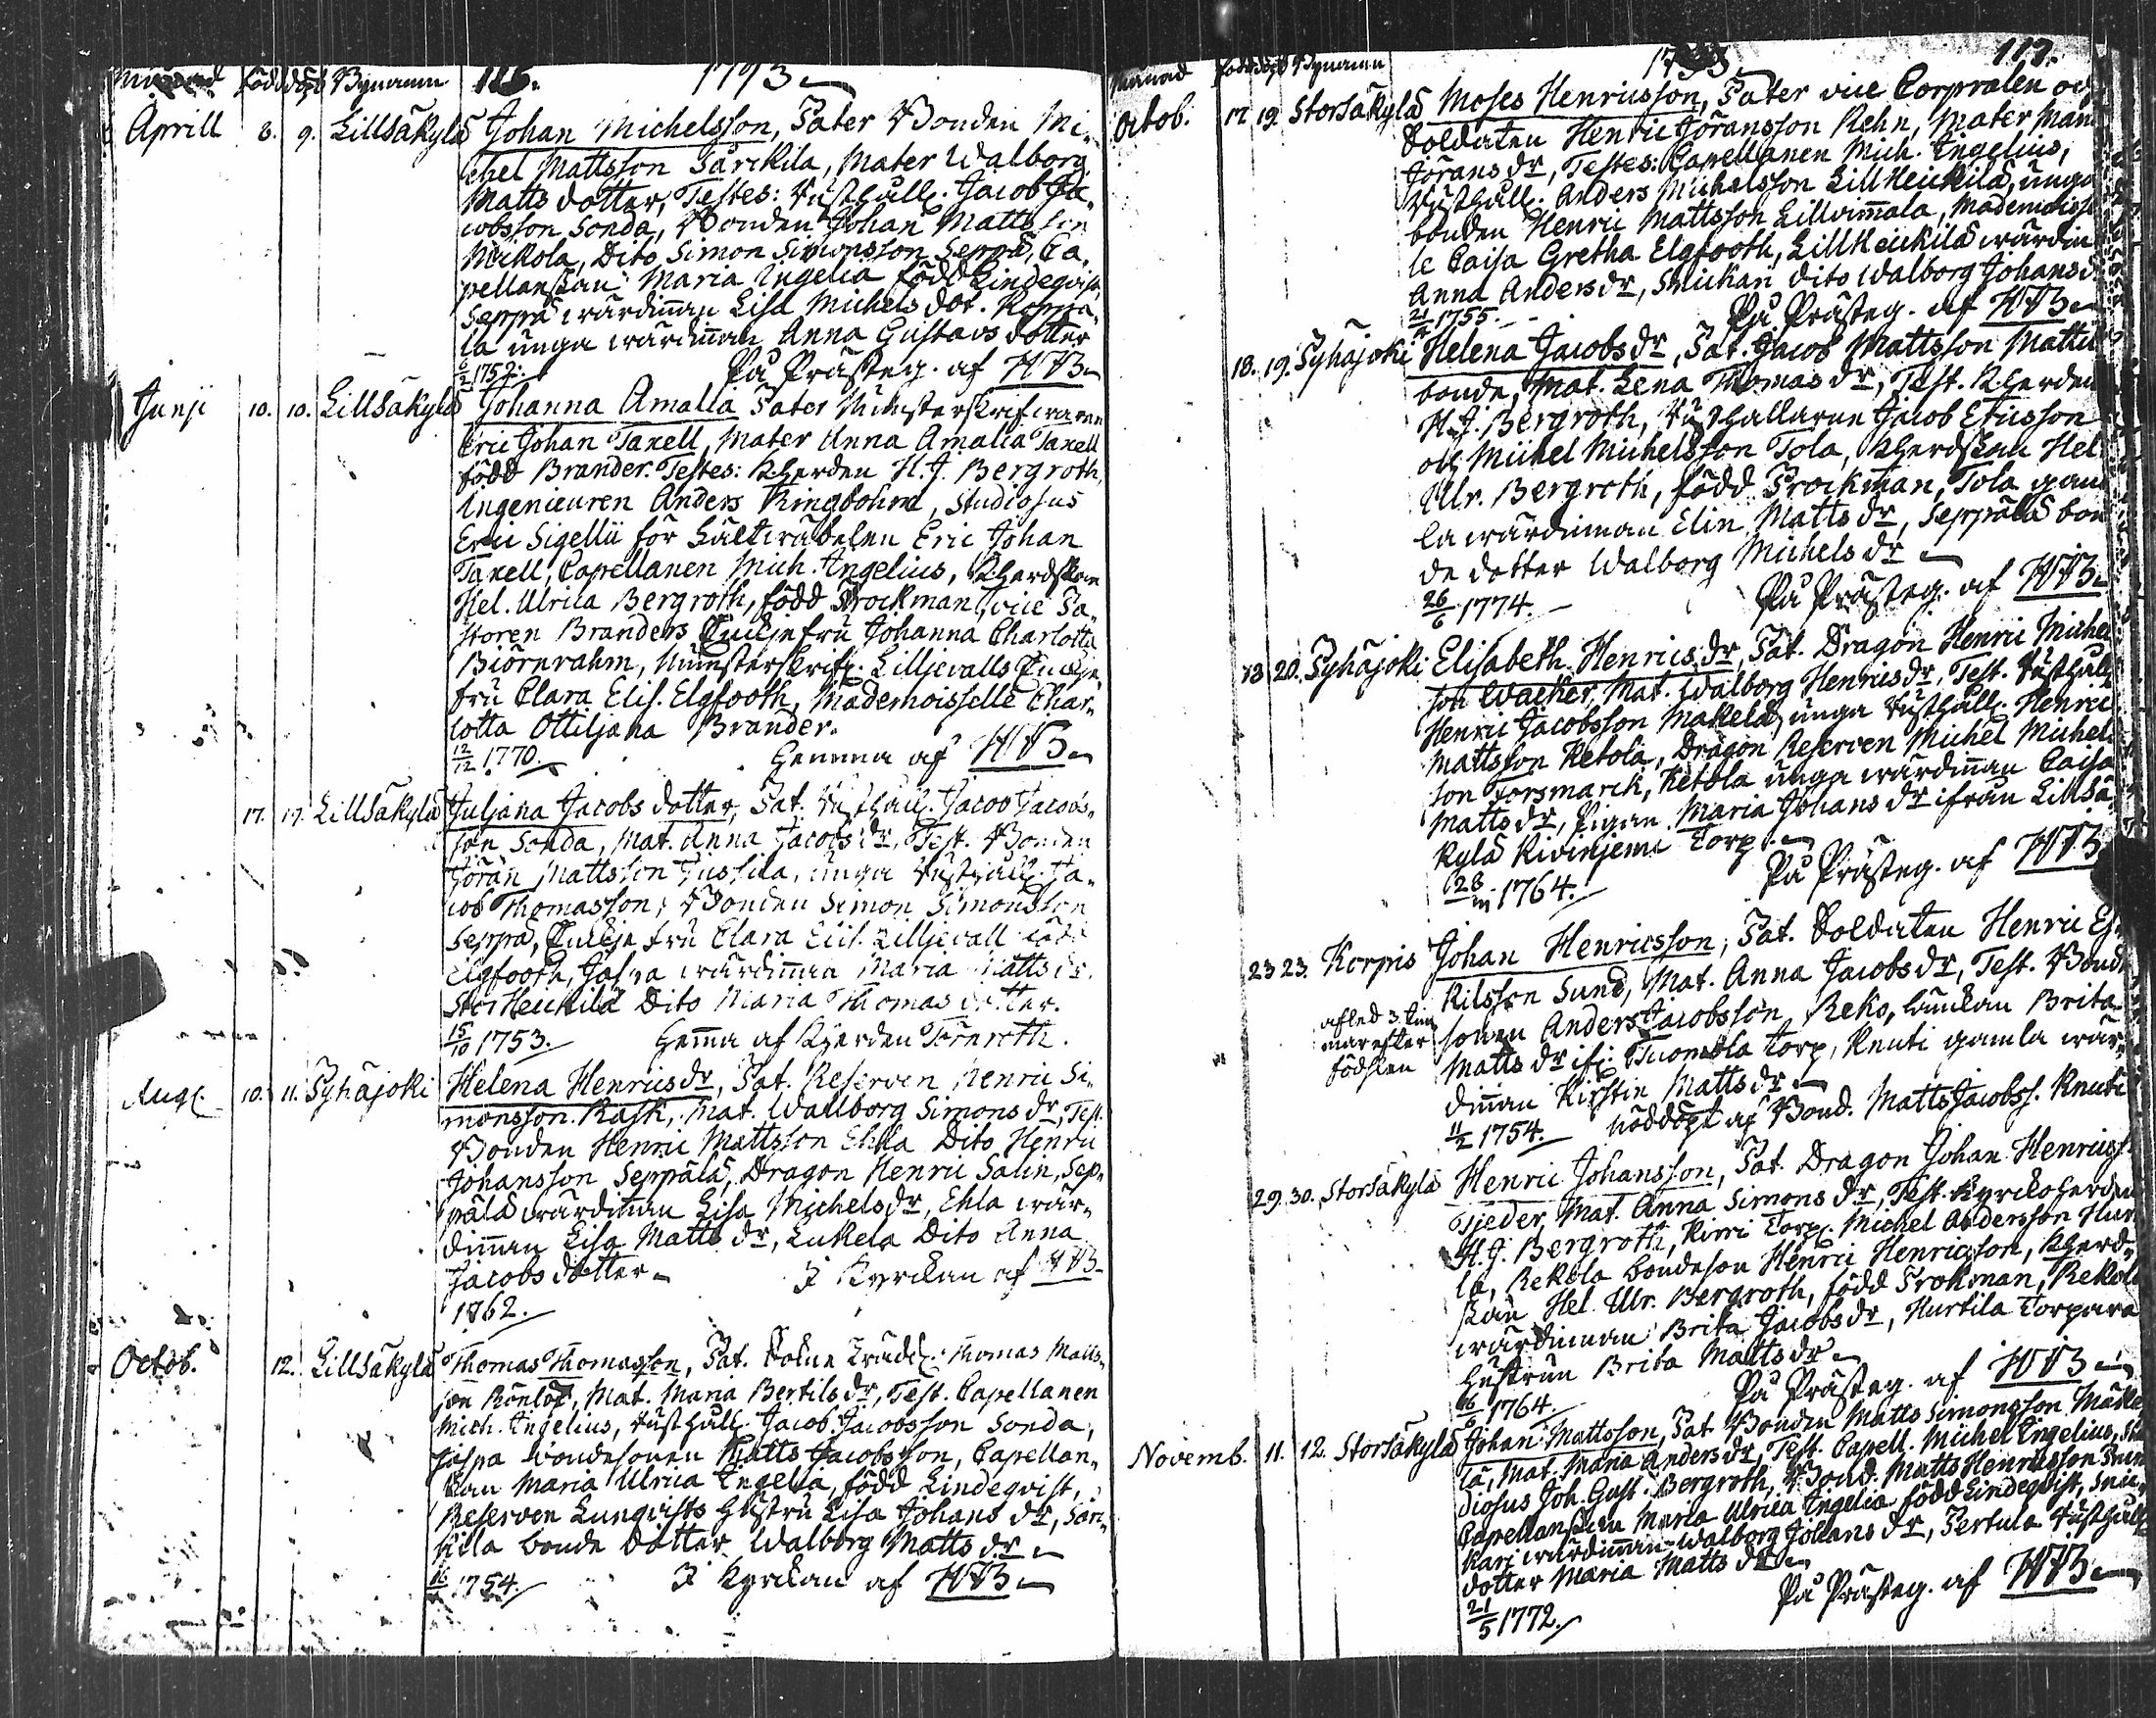 Månad född döpt Bynamn 116. 1793
Aprill 8. 9. Lillsäkylä Johan Michelsson, Pater Bonden Mi-
chel Mattsson Särkilä, Mater Walborg
Matts dotter, Testes: Rusthåll. Jacob Ja-
cobsson Sonda, Bonden Johan Mattsson
Mikola, Dito Simon Simonsson Seppä, Ca-
pellanskan Maria Ingelia född Lindeqvist,
Seppä wärdinnan Lisa Michels dot.
la unga wärdinnan Anna Gustavs dotter
1752. På Prästeg. af HJB
Junji 10. 10. Lillsäkylä Johanna Amalia Pater Münsterskrifwaren
Eric Johan Taxell, Mater Anna Amalia Taxell
född Brander. Testes: Kherden H. J. Bergroth,
Ingenieuren Anders Ringbohm, Studiosus
Eric Sigellii för Fältwäbelen Eric Johan
Taxell, Capellanen Mich. Ingelius, Kherdskan
Hel. Ulrica Bergroth, född Prockman, vice Pa-
storen Branders Enckje fru Johanna Charlotta
Biörnrahm, Münsterskrifv. Lilljevalls Enckje
fru Clara Elis. Elgfooth, Mademoisselle Char-
lotta Ottiljana Brander.
12/12 1770. Hemma af HJB
17. 17. Lillsäkylä Juljana Jacobs dotter, Pat. Rusthåll. Jacob Jacobs-
son Sonda, Mat. Anna Jacobs dr, Test. Bonden
Jöran Mattsson Jussila, unga Rusthåll. Ja-
cob Thomasson, Bonden Simon Simonsson
Seppä, Enckje fru Clara Elis. Lilljevall född
Elgfooth, Jaspa wärdinnan Maria Matts dr.
StorHeickilä Dito Maria Thomas dotter.
15/10 1753. Hemma af Kherden Törnroth.
Aug. 10. 11. Pyhäjoki Helena Henrics dr, Pat. Reserven Henric Si-
monsson Rask, Mat. Wallborg Simons dr, Test.
Bonden Henric Mattsson Ehla Dito Henric
Johansson Seppälä, Dragon Henric Salin, Sep-
pälä wärdinnan Lisa Michels dr, Ehla wär-
dinnan Lisa Matts dr, Lukela Dito Anna
Jacobs dotter. I Kyrckan af HJB
1762.
Octob. 12. Lillsäkylä Thomas Thomasson, Pat. Thomas Matts-
son Rönlöf, Mat. Maria Bertils dr, Test. Capellanen
Mich. Ingelius, Rusthåll. Jacob Jacobsson Sonda,
Jaspa bondesonen Matts Jacobsson, Capellan-
skan Maria Ulrica Ingelia, född Lindeqvist,
Reserven Lunqvists hustru Lisa Johans dr, Särc-
kila bonde dotter Walborg Matts dr
1754. I Kyrckan af HJB
Månad född döpt Bynamn 117.
Octob. 17. 19. Storsäkylä Moses Henricsson, Pater vice Corpralen och
Soldaten Henric Jöransson Rehn, Mater
Jörans dr, Testes: Capellanen Mich. Ingelius,
Rusthåll. Anders Michelsson LillHeickilä, unga
bonden Henric Mattsson Lillvimmala,
le Caisa Gretha Elgfooth, LillHeickilä wärdin
Anna Anders dr, Snickari dito Walborg Johans dr
21/4 1755. På Prästeg. af HJB
18. 19. Pyhäjoki Helena Jacobs dr, Pat. Jacob Mattsson
bonde, Mat. Lena Thomas dr, Test. Kherden
H. J. Bergroth, Rusthållaren Jacob Ericsson
och Michel Michelsson Tola, Kherdskan Hel.
Ulr. Bergroth, född Prockman, Tola gam
la wärdinnan Elin Matts dr, Seppälä bon
de dotter Walborg Michels dr
26/6 1774. På Prästeg. af HJB
18. 20. Pyhäjoki Elisabeth Henrics dr, Pat. Dragon Henric Michels
son Wacker, Mat. Walborg Henrics dr, Test. Rusthåll.
Henric Jacobsson Makela, unga Rusthåll. Henric
Mattsson Ketola, Dragon Reserven Michel Michels
son Forsmarck, Ketola unga wärdinnan Caisa
Matts dr, Pigan Maria Johans dr ifrån Lillsä
kylä Kivinjemi Torp.
1764. På Prästeg. af HJB
23. 23. Korpris Johan Henricsson, Pat. Soldaten Henric Es-
kilsson Sund, Mat. Anna Jacobs dr, Test. Bonde
afled 3 tim-
mar efter
födslen
sonen Anders Jacobsson Reko, Brita
Matts dr ifr. Tuomola Torp, Knuti gamla wär-
dinnan Kirstin Matts dr
11/2 1754. Nöddöpt af Bond. Matts Jacobss. Knuti
29. 30. Storsäkylä Henric Johansson, Pat. Dragon Johan Henricss.
Tjeder, Mat. Anna Simons dr, Test. Kyrckoherden
H. J. Bergroth, Kirri Torp. Michel Andersson Hur
la, Rekola bondeson Henric Henricsson, Kherd-
skan Hel. Ulr. Bergroth, född Prokman, Rekola
wärdinnan Brita Jacobs dr, Hurtila Torpare
hustrun Brita Matts dr
16/6 1764. På Prästeg. af HJB
Novemb. 11. 12. Storsäkylä Johan Mattsson, Pat. Bonden Matts Simonsson Mäke
lä, Mat. Maria Anders dr, Test. Capell. Michel Ingelius, Stu
diosus Joh. Gust. Bergroth, Bond. Matts Henricsson
Capellanskan Maria Ulrica Ingelia född Lindeqvist, Snic-
kari wärdinnan Walborg Johans dr, Pertula Rusthåll.
dotter Maria Matts dr
21/5 1772. På Prästeg. af HJB